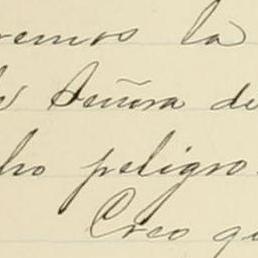 remos la
Señora de
ho peligro
Creo qu